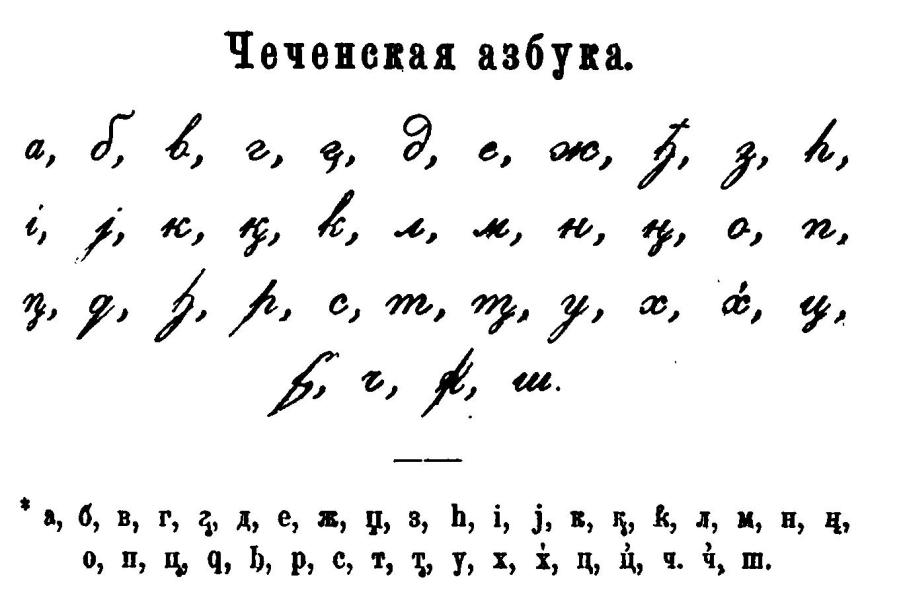 Чеченская азбука.
а, б, в, г, г̧, д, е, ж, ђ, з, һ,
і, ј, к, қ, k, л, м, н, ң, о, п,
ҧ, q, ђ, р, с, т, т̧, у, х, х̓, ц,
ч, ш.
* а, б, в, г, г̧, д, е, ж, џ, з, һ, і, ј, к, қ, k, л, м, н, ң,
о, п, ҧ, q, ђ, р, с, т, т̧, у, х, х̓, ц, ц̓, ч. ч̓, ш.